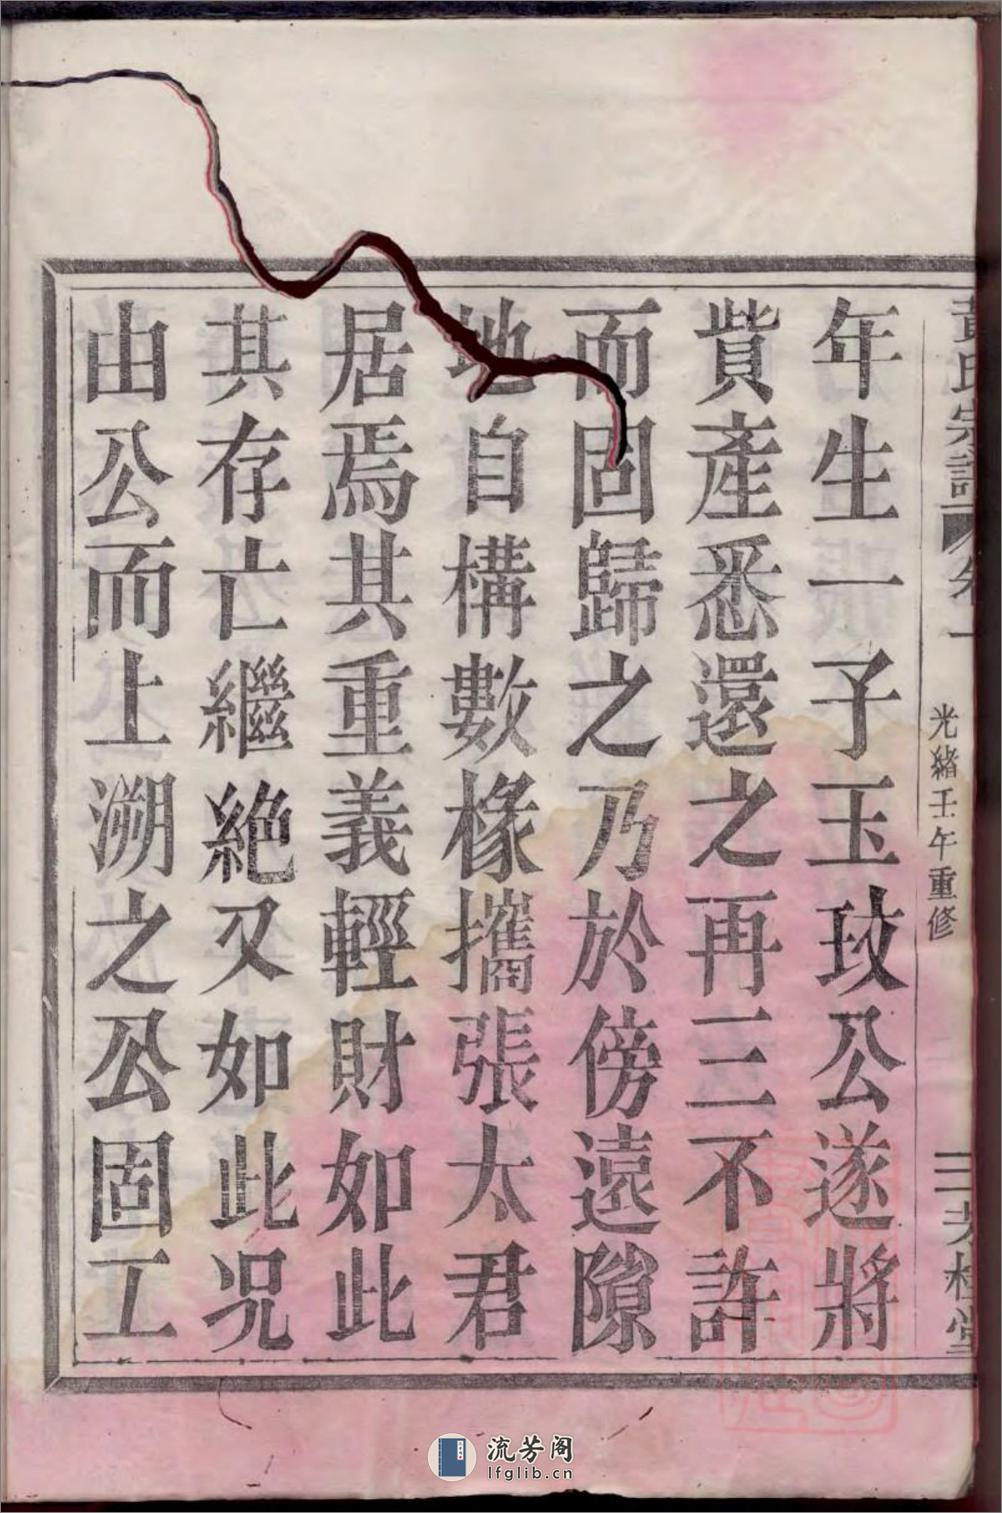 黃氏宗譜 卷一 光緒壬午重修 三 大槐堂
年生一子玉玟公遂將
貲產悉還之再三不許
而固歸之乃於傍遠隙
地自構數椽攜張太君
居焉其重義輕財如此
其存亡繼絕又如此況
由公而上溯之公固工
流芳阁
lfglib.cn